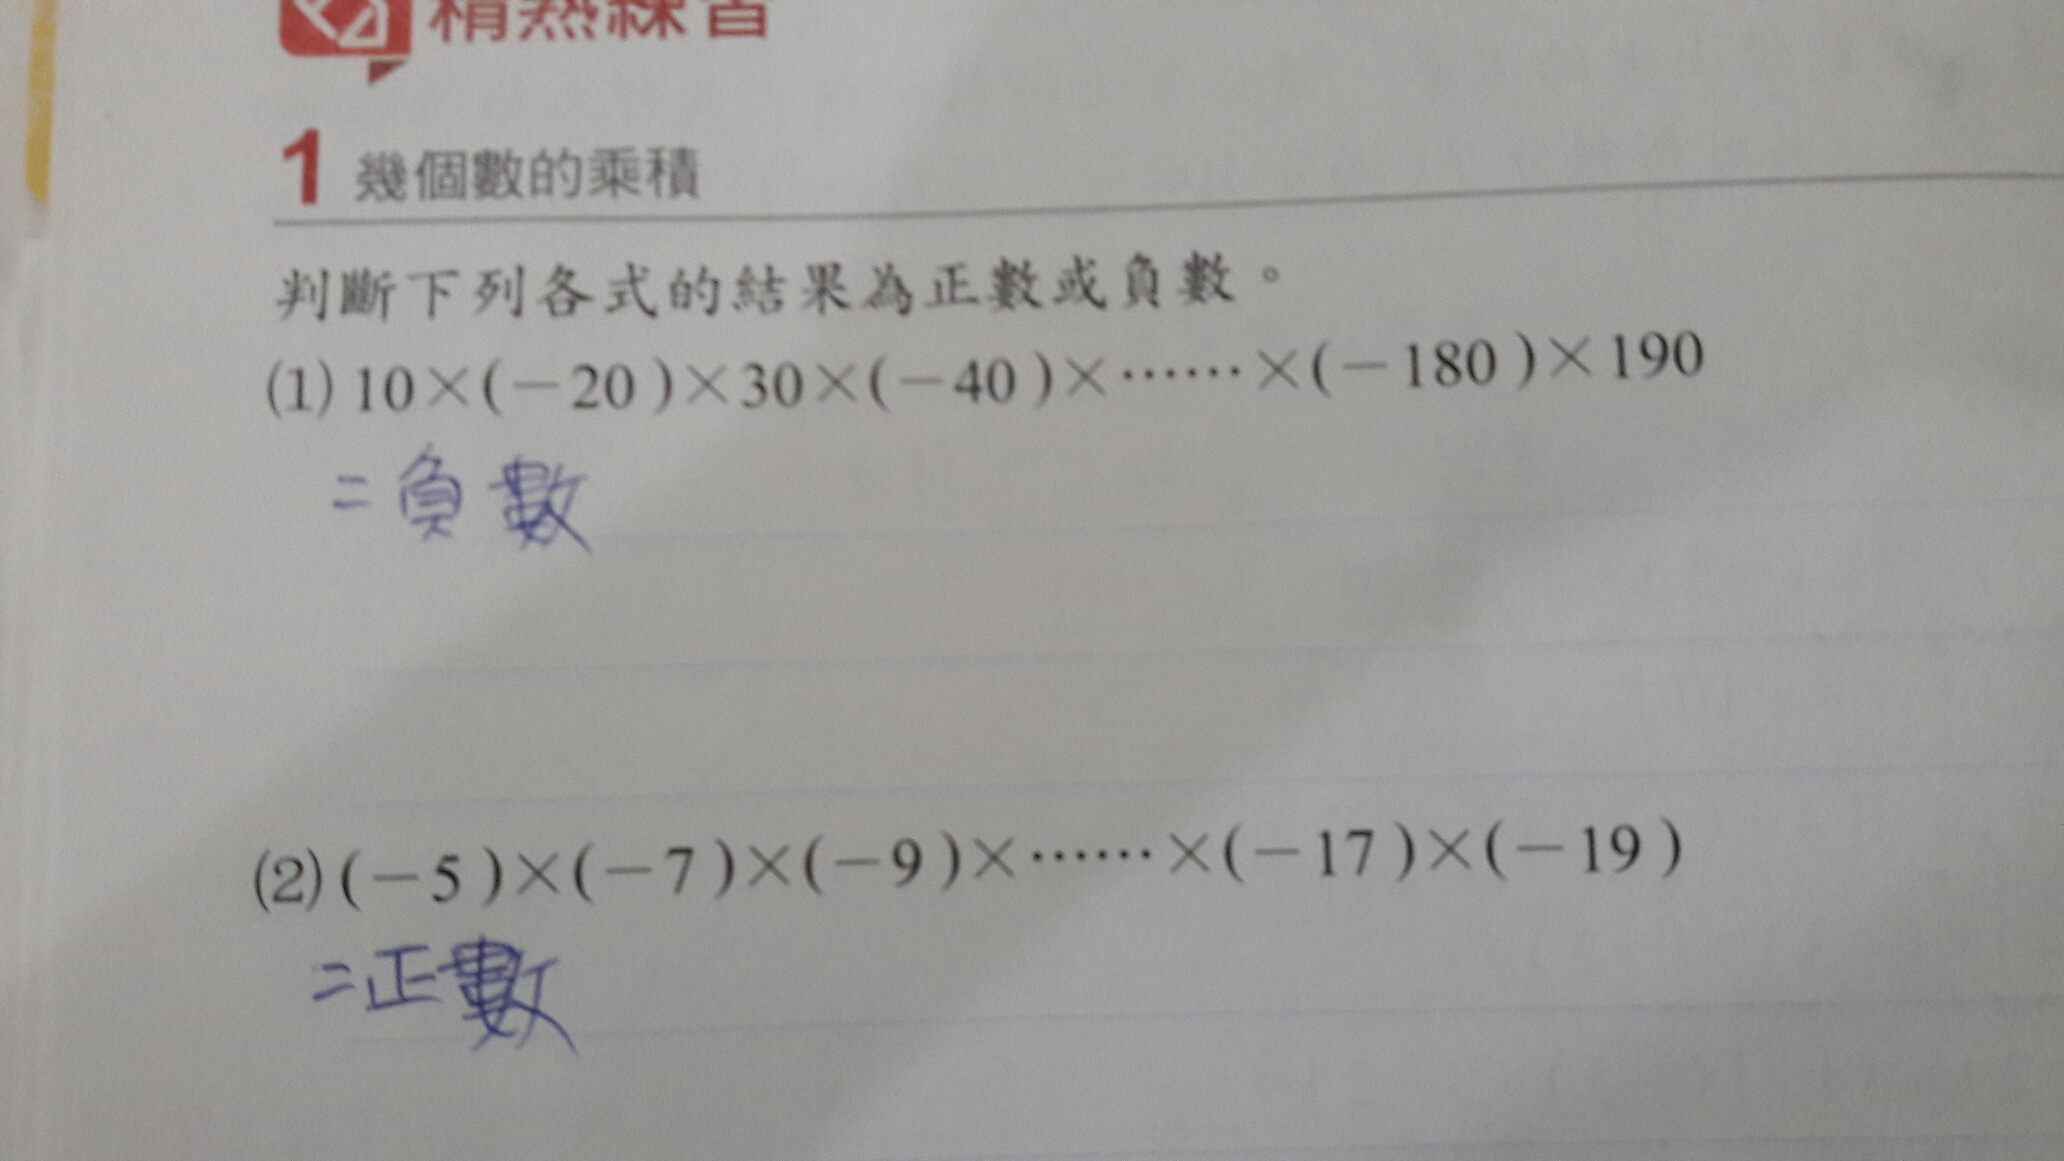 精熟練習
1 幾個數的乘積
判斷下列各式的結果為正數或負數。
(1) 10×(-20)×30×(-40)×……×(-180)×190
=負數
(2) (-5)×(-7)×(-9)×……×(-17)×(-19)
=正數